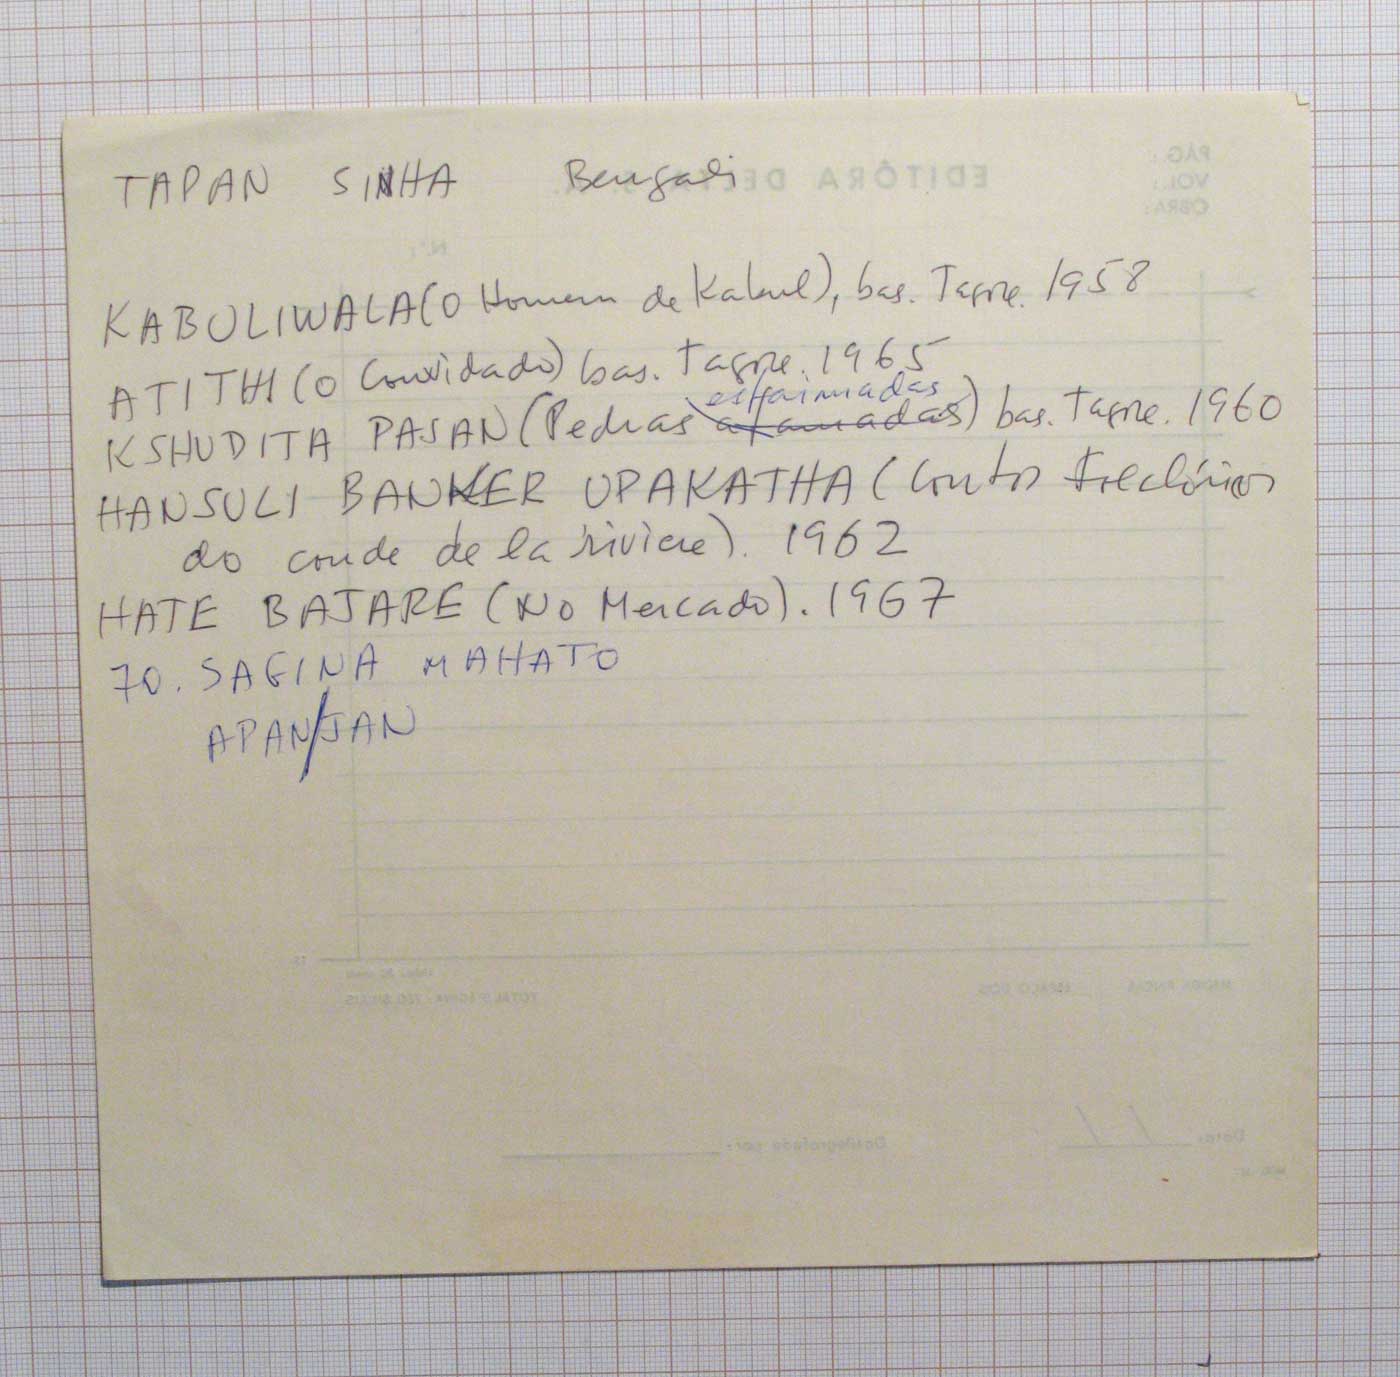 TAPAN SINHA Bengali
KABULIWALA (O Homem de Kabul), bas. Tagore. 1958
ATITHI (O Convidado) bas. Tagore. 1965
esfaimadas
KSHUDITA PASAN (Pedras afamadas) bas. Tagore. 1960
HANSULI BANKER UPAKATHA (Contos Folclóricos
do coude de la rivière). 1962
HATE BAJARE (No Mercado). 1967
70. SAGINA MAHATO
APAN/JAN
PÁG.:
VOL.:
OBRA:
EDITÔRA DEL
N.º:
Datilografado por:
Data: